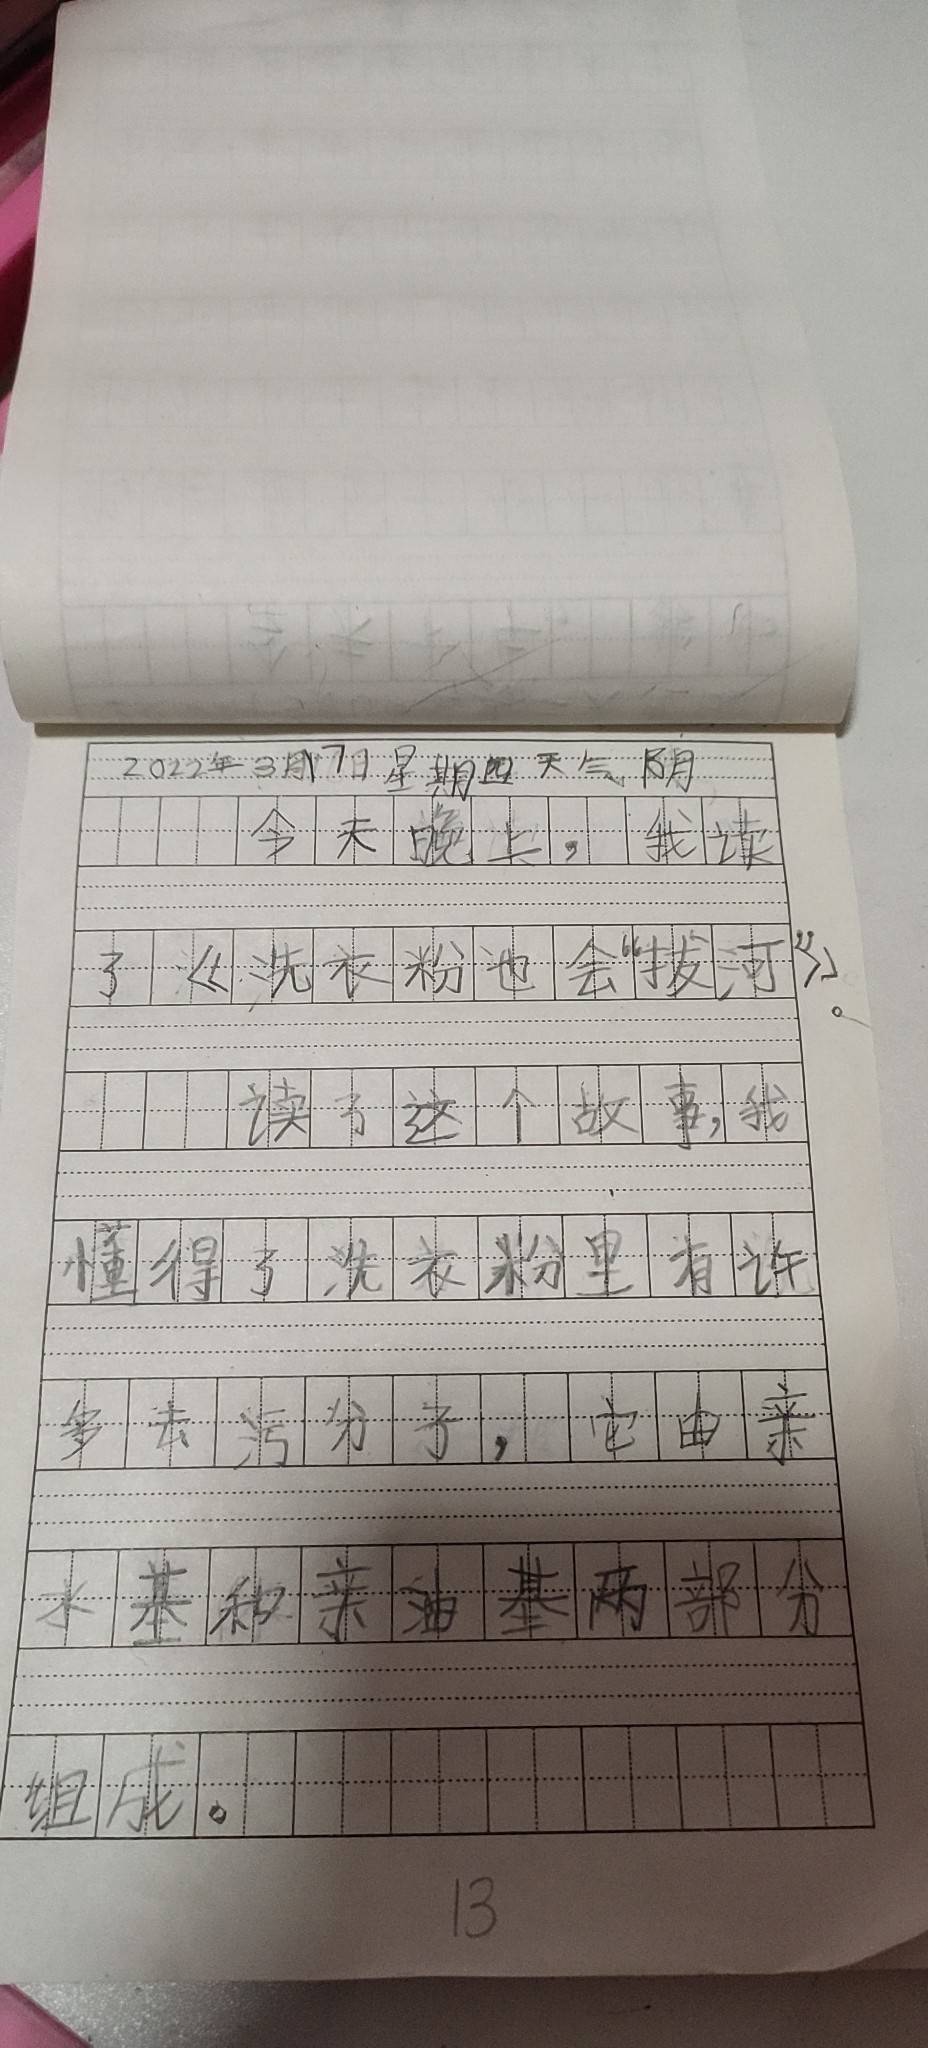 2022年3月17日星期四天气阴
今天晚上，我读
了《洗衣粉也会“拔河”》。
读了这个故事，我
懂得了洗衣粉里有许
多去污分子，它由亲
水基和亲油基两部分
组成。
13